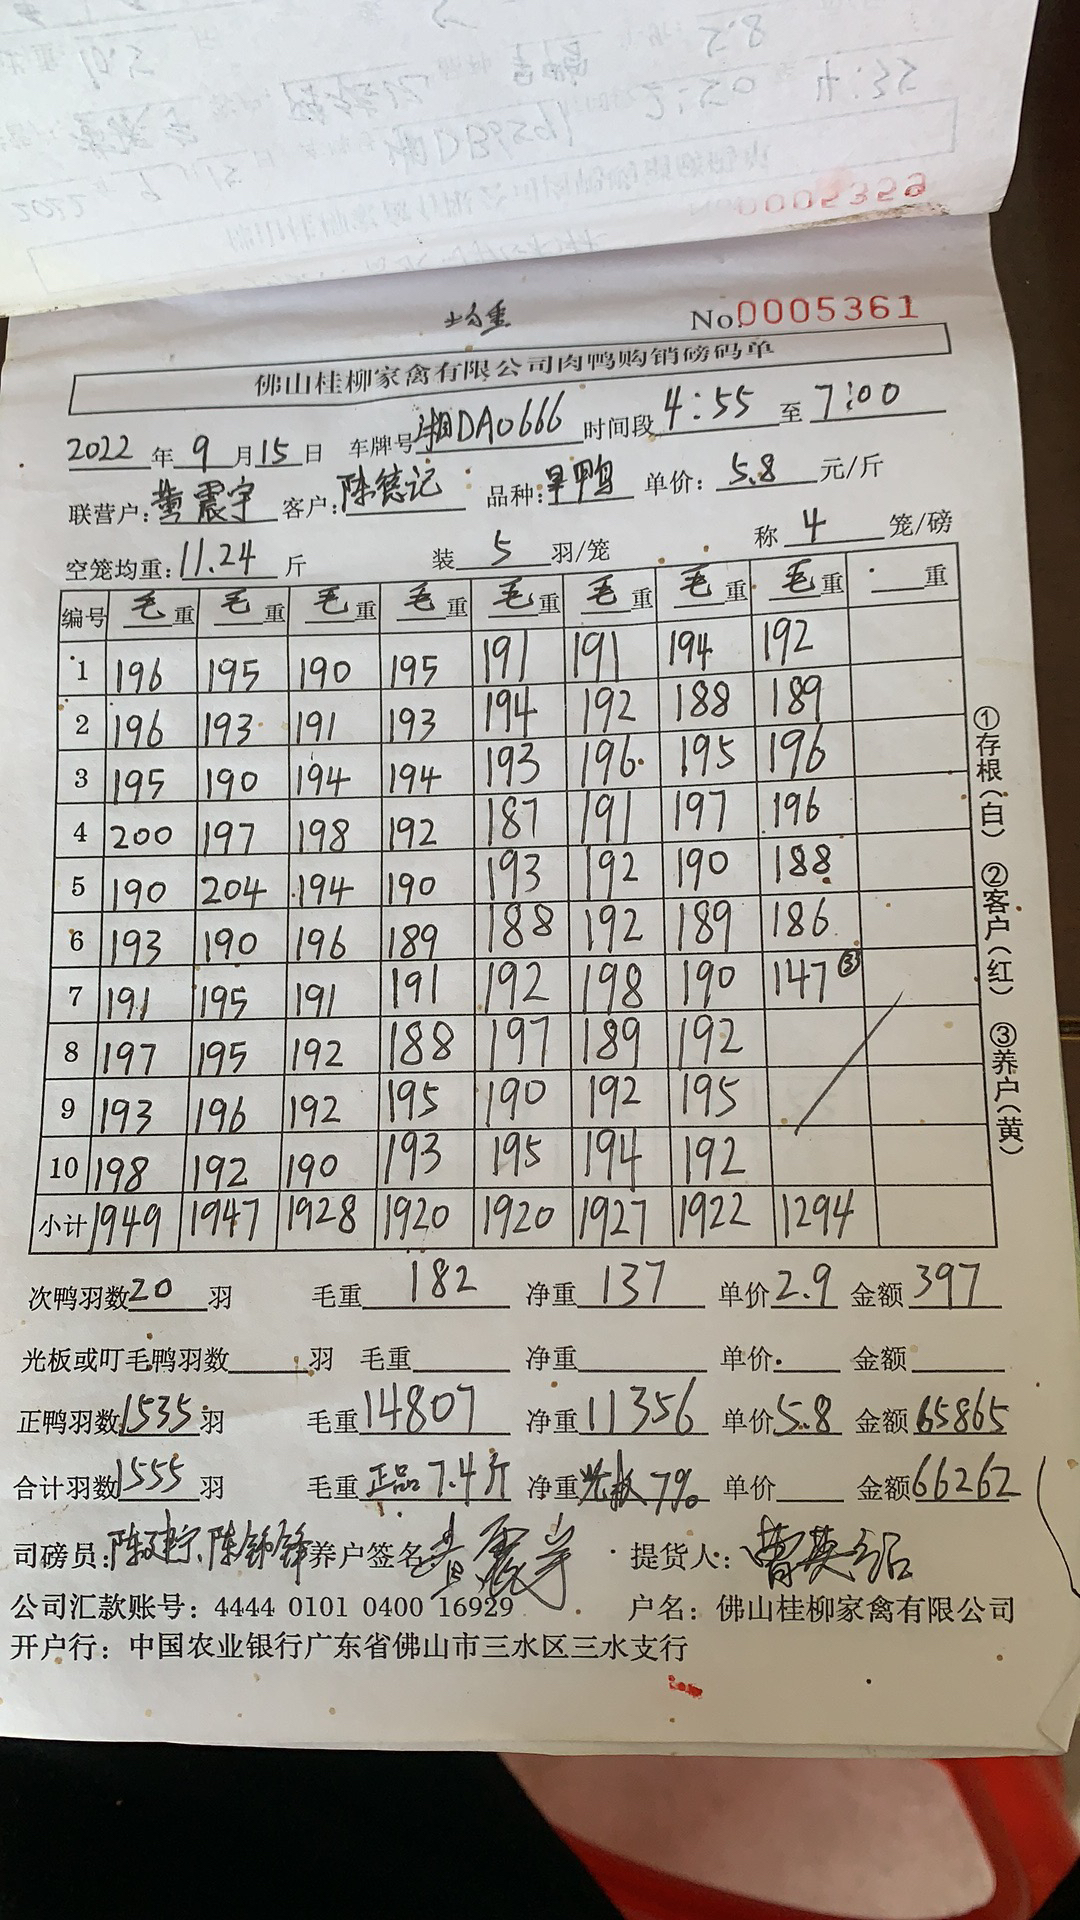 均重
No 0005361
佛山桂柳家禽有限公司肉鸭购销磅码单
2022年9月15日 车牌号湘DA0666 时间段4:55至7:00
联营户:黄震宇 客户:陈德记 品种:旱鸭 单价:5.8元/斤
空笼均重:11.24斤 装5羽/笼 称4笼/磅
编号 毛重 毛重 毛重 毛重 毛重 毛重 毛重 毛重 重
1 196 195 190 195 191 191 194 192
2 196 193 191 193 194 192 188 189
3 195 190 194 194 193 196 195 196
4 200 197 198 192 187 191 197 196
5 190 204 194 190 193 192 190 188
6 193 190 196 189 188 192 189 186
7 191 195 191 191 192 198 190 147 ③
8 197 195 192 188 197 189 192
9 193 196 192 195 190 192 195
10 198 192 190 193 195 194 192
小计 1949 1947 1928 1920 1920 1927 1922 1294
次鸭羽数20羽 毛重182 净重137 单价2.9 金额397
光板或叮毛鸭羽数 羽 毛重 净重 单价 金额
正鸭羽数1535羽 毛重14807 净重11356 单价5.8 金额65865
合计羽数1555羽 毛重正品7.4斤 净重光板7% 单价 金额66262
司磅员: 养户签名 提货人:
公司汇款账号:4444 0101 0400 16929 户名:佛山桂柳家禽有限公司
开户行:中国农业银行广东省佛山市三水区三水支行
①存根(白) ②客户(红) ③养户(黄)